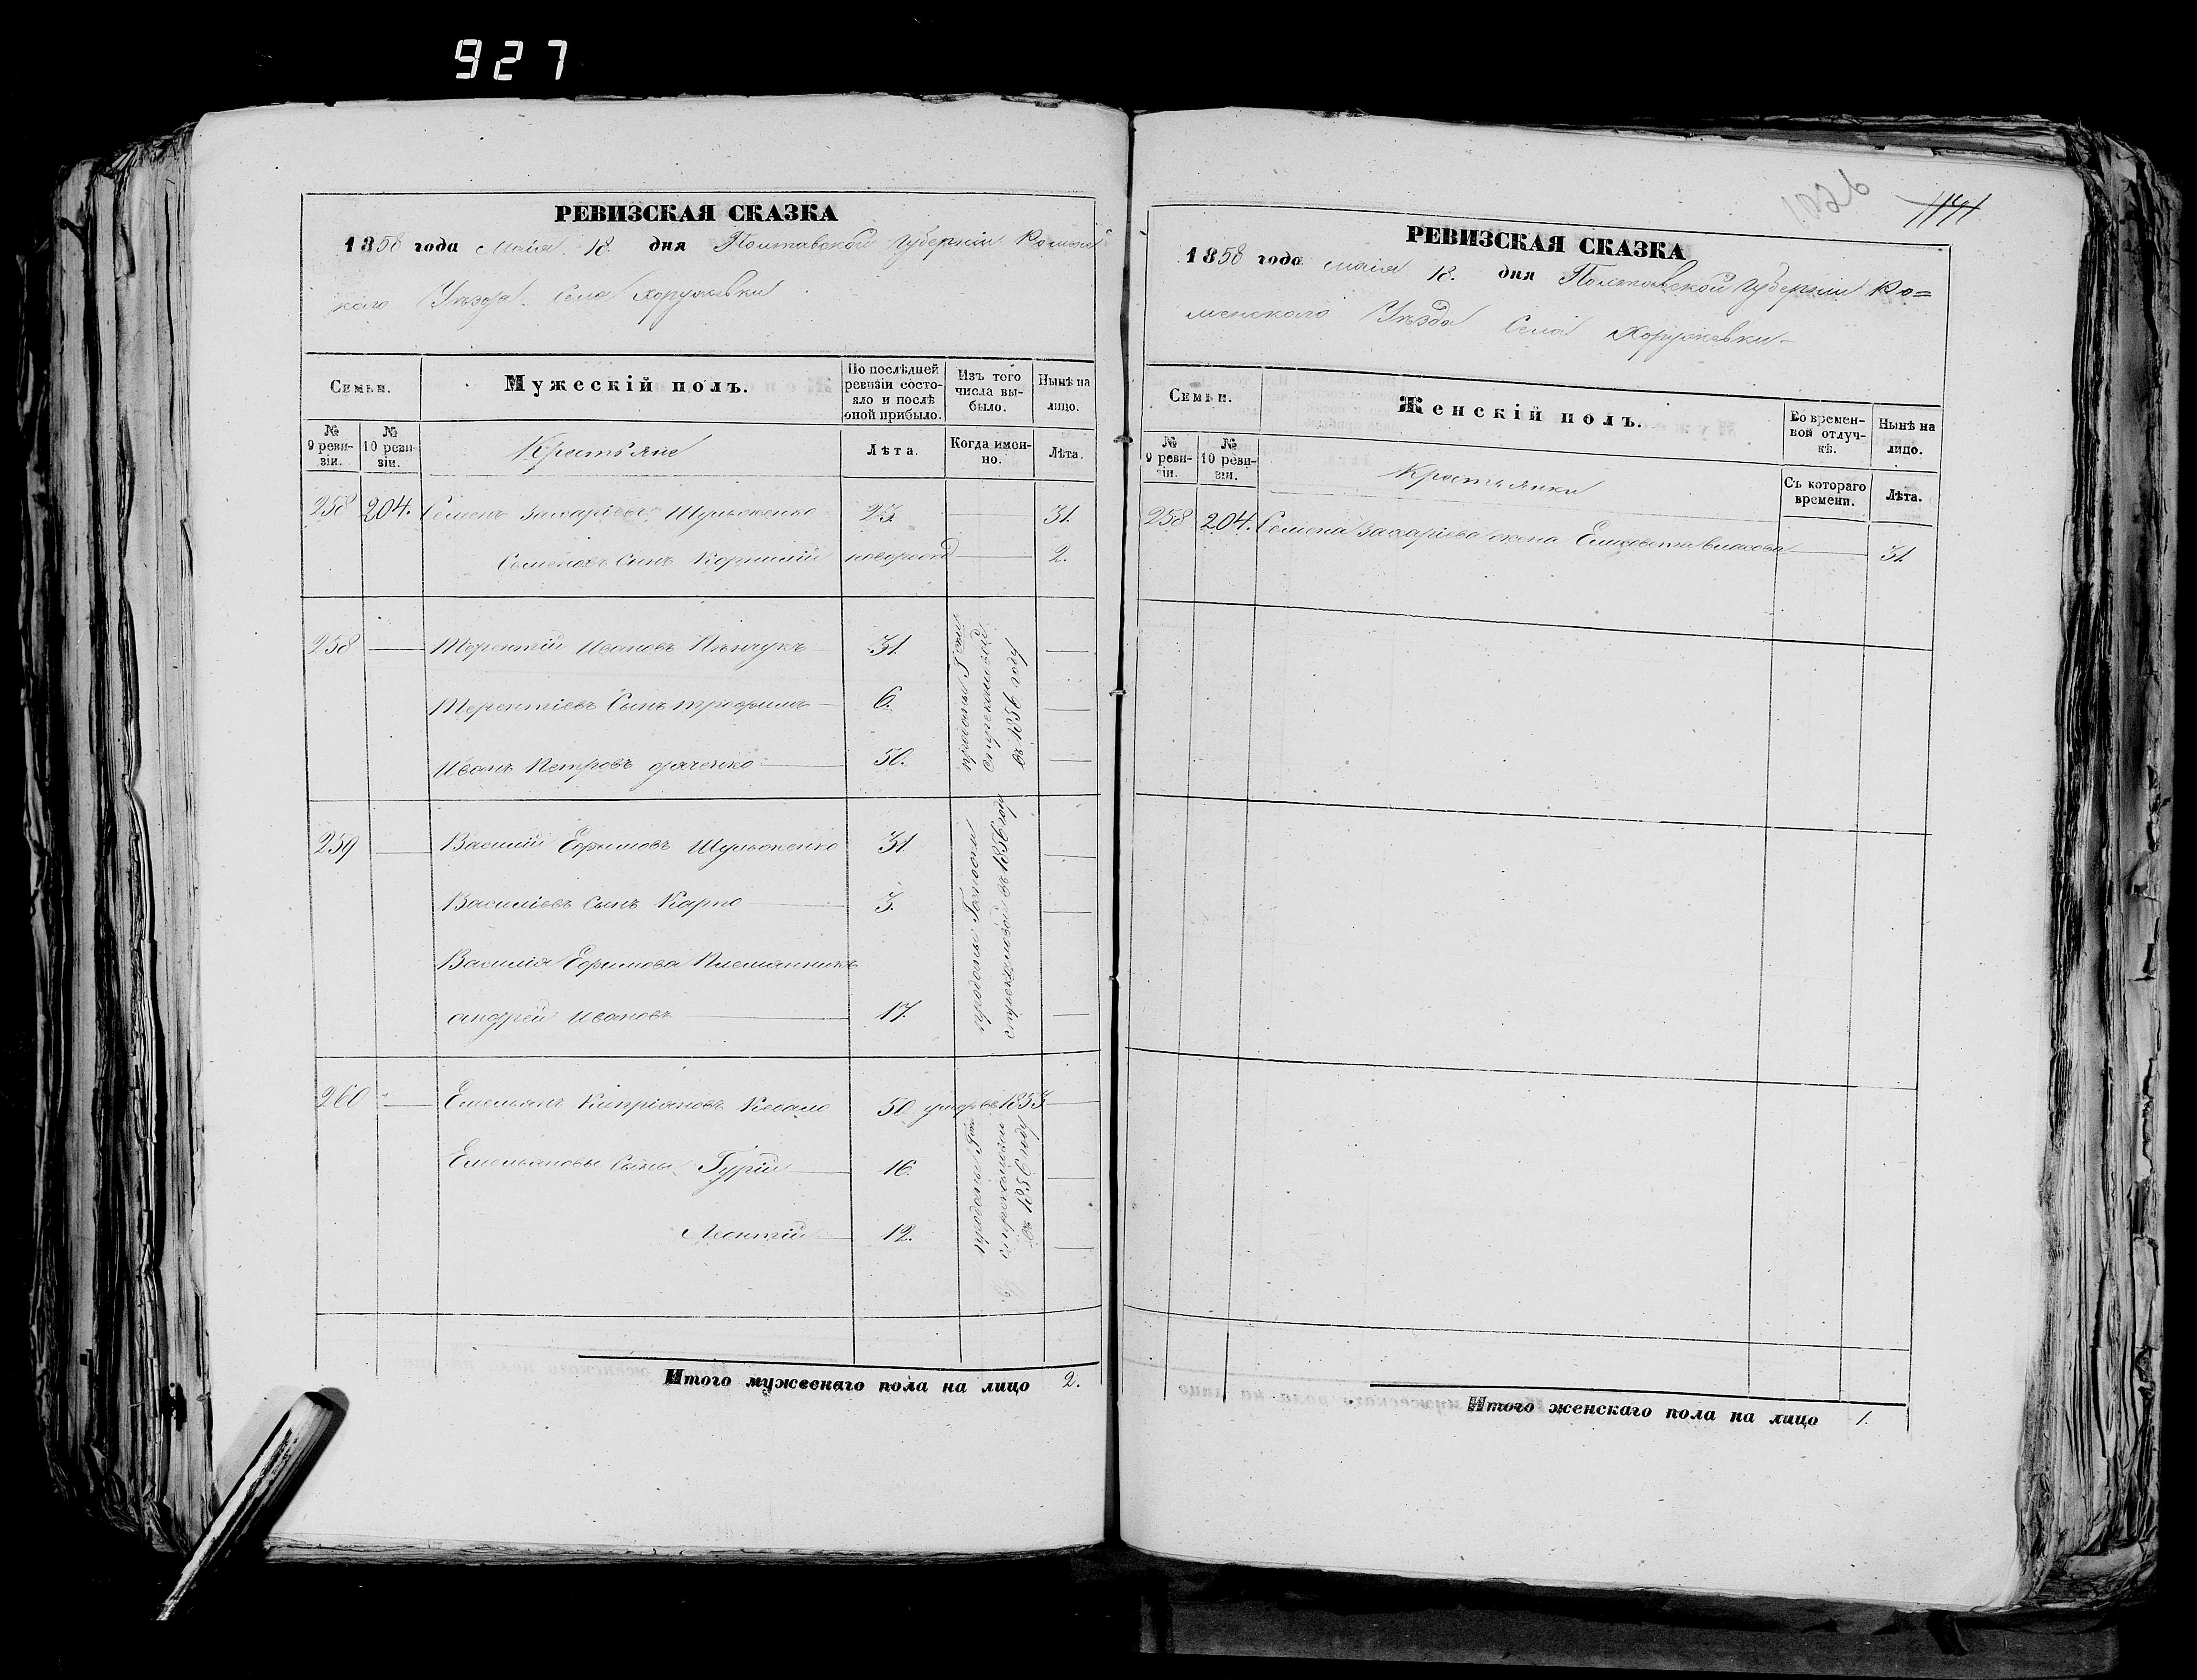 927
РЕВИЗСКАЯ СКАЗКА
1858 года маія 18. дня Полтавской губерніи Ромен
скаго Уѣзда. Села Хоружевки
Семьи.
Мужескій полъ.
По послѣдней ревизіи состояло и послѣ оной прибыло.
Изъ того числа выбыло.
Нынѣ на лицо.
№ 9 ревизіи.
№ 10 ревизіи.
Крестьяне
Лѣта.
Когда именно.
Лѣта.
258 204. Семенъ Захаріевъ 23. 31.
Семеновъ Сынъ Корнилій новорожд 2.
258 Терентій Ивановъ 31.
Терентіевъ Сынъ Трофимъ 6.
Иванъ Петровъ 50.
проданы
въ 1856 году
259 Василій Ефимовъ 31
Василіевъ Сынъ Карпо 3.
Василія Ефимова Племянникъ
Андрей Ивановъ 17.
проданы Госпожи
въ 1856 году
260 Емельянъ Кипріяновъ 50 умер въ 1853
Емельяновы Сыны Гурій 16.
Леонтій 12.
проданы
въ 1856 году
Итого мужескаго пола на лицо 2.
1141
РЕВИЗСКАЯ СКАЗКА
1858 года маія 18. дня Полтавской Губерніи Ро=
менскаго Уѣзда Села Хоружевки
Семьи.
Женскій полъ.
Во временной отлучкѣ.
Нынѣ на лицо.
№ 9 ревизіи.
№ 10 ревизіи.
Крестьянки
Съ котораго времени.
Лѣта.
258 204. Семена Захаріева жена Елисавета Власова 31
Итого женскаго пола на лицо 1.